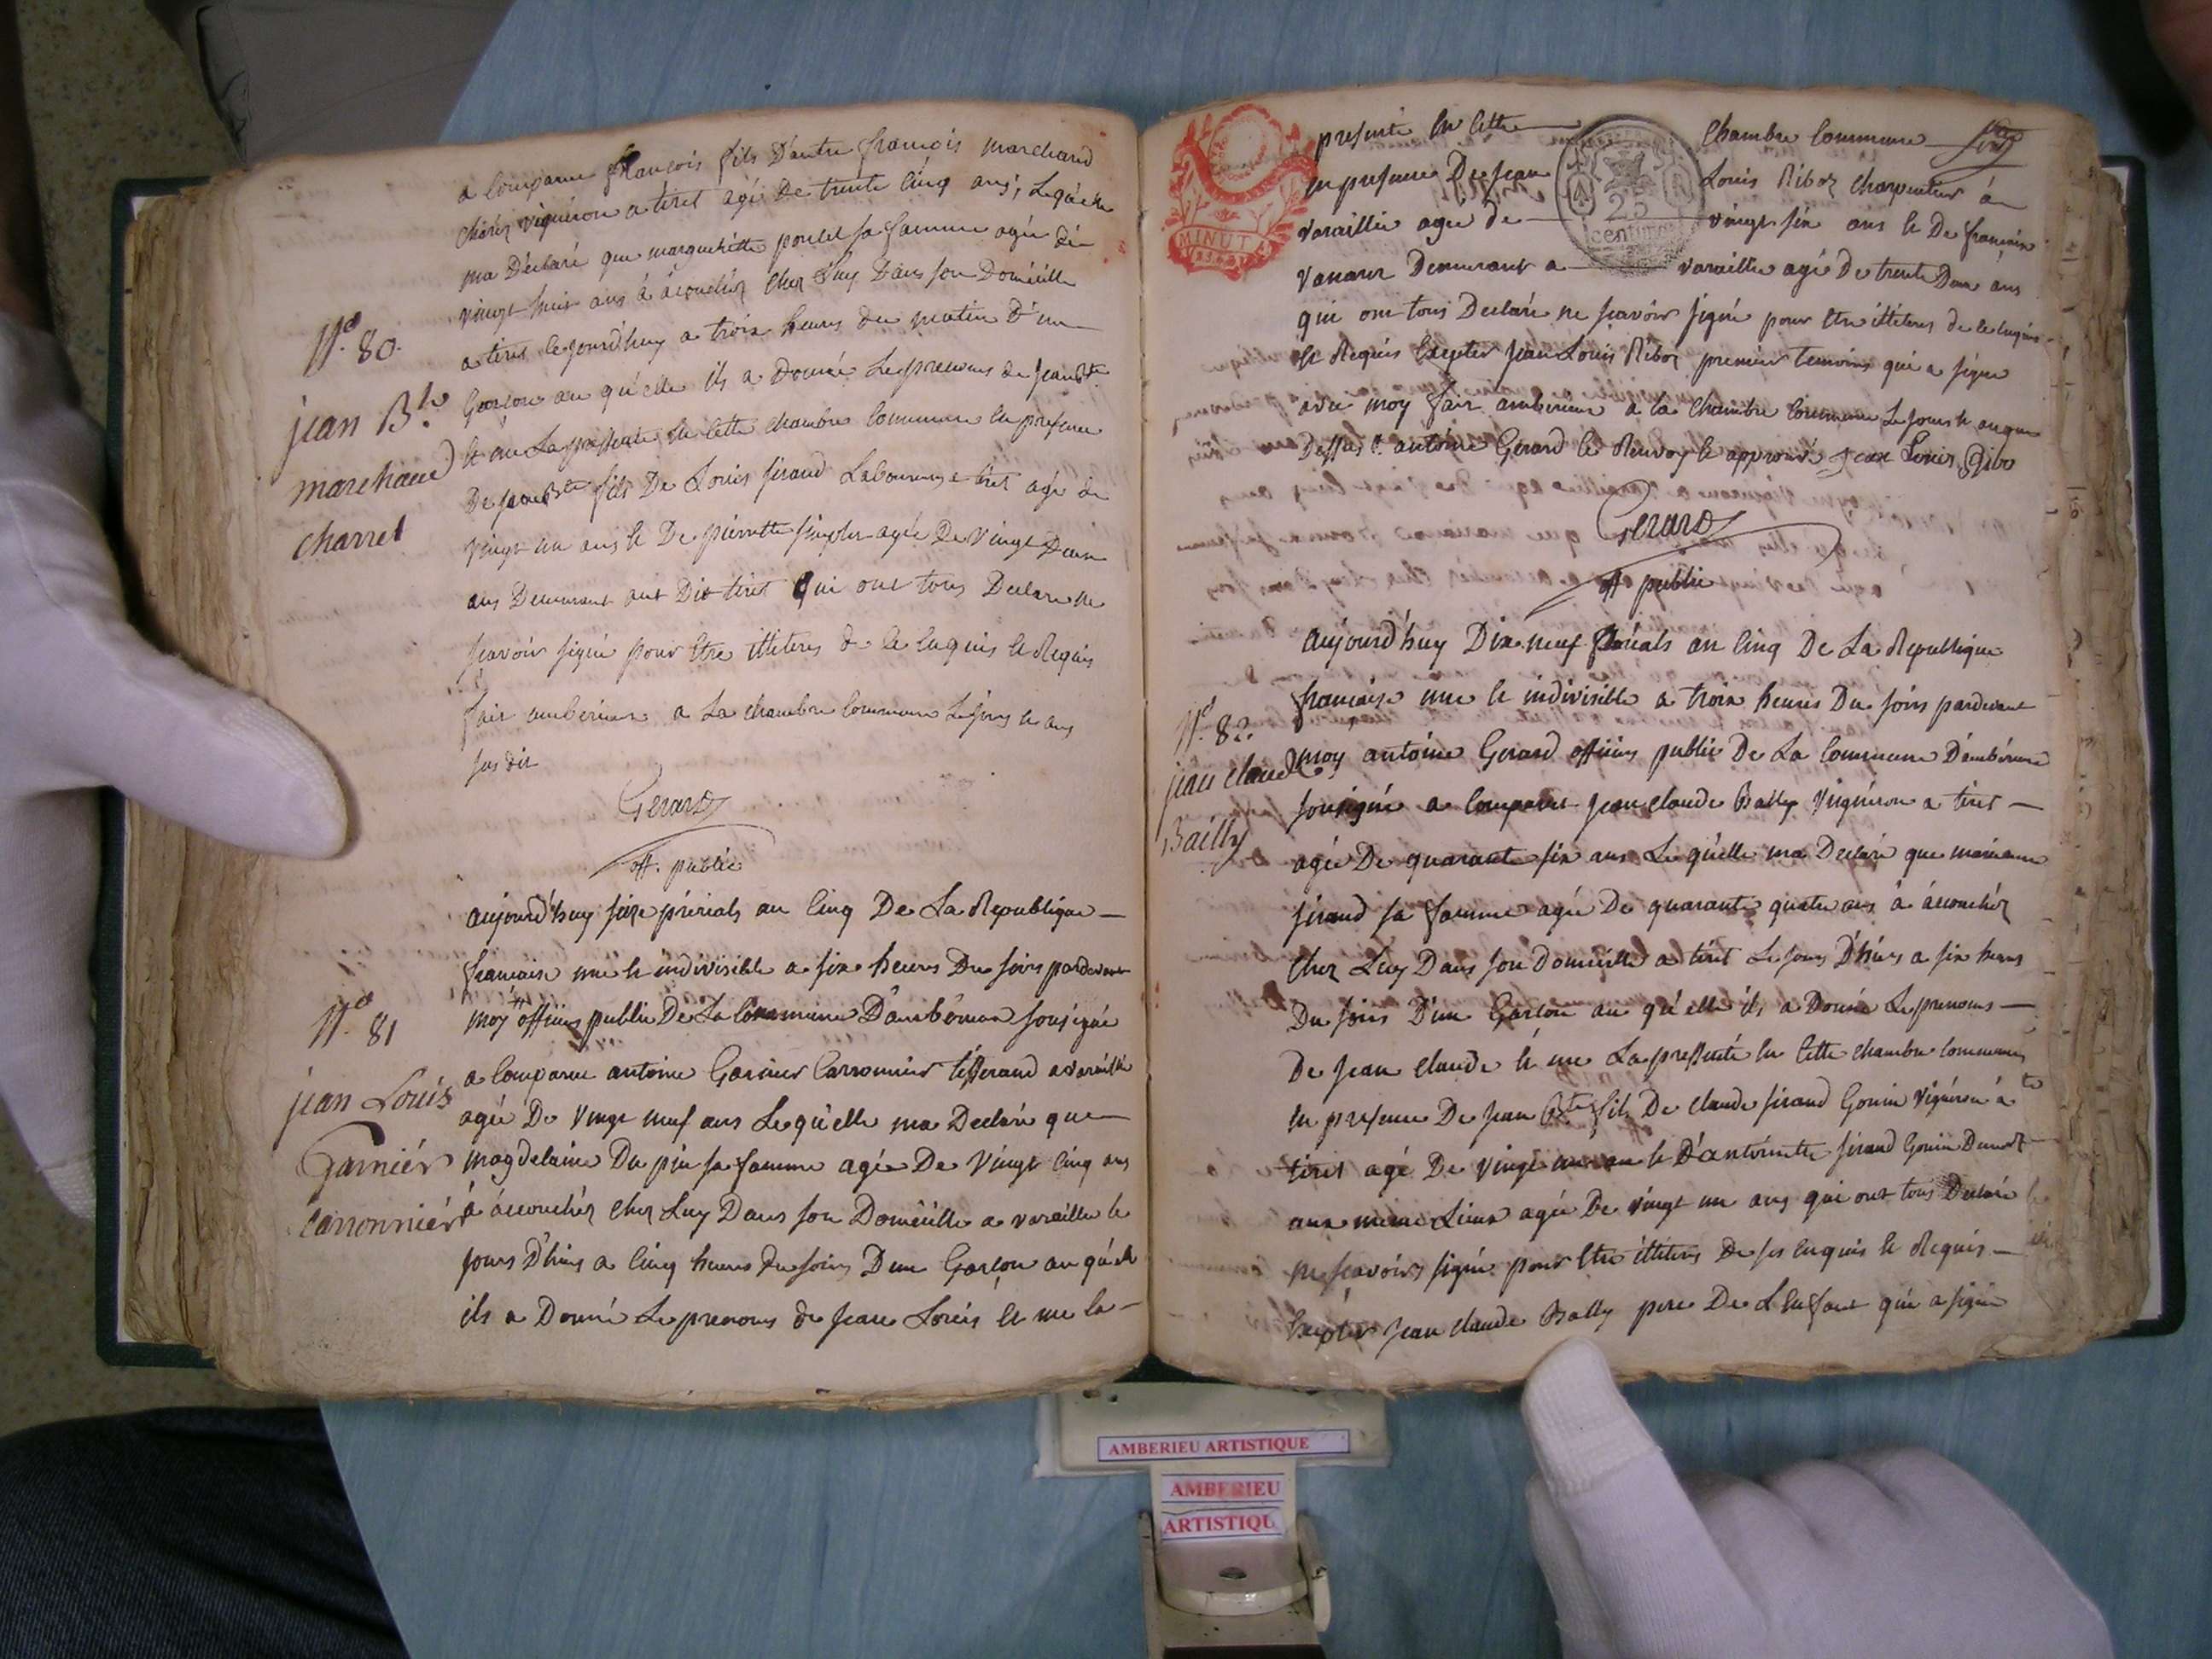 a comparue françois fils D'autre françois marchand
vigneron a tiret agé De trente cinq ans, Lequ'elle
ma Déclaré que margueritte poulet sa famme agée de
vingt huit ans à acouchéz chez Luy Dans son Domicille
a tiret cejourd'huy a trois heures du matin d'un
Garçon au qu'elle ils a Donné Les prenoms de jean Bte
et me La présenté en cette chambre commune en presence
De jean Bte fils De Louis sirand Laboureur a tiret agé de
vingt un ans et De pierrette agée De vingt Deux
ans Demeurant aut Dit tiret Qui ont tous Declaré ne
scavoir signé pour être illiteres de ce enquis et Requis
fait amberieux a La chambre commune Le jour et ans
sus dit
Gerard
off. public
N.o 80.
jean B.te
marchand
charret
aujourd'huy seize prerials an cinq De La Republique
francaise une et indivisible a six heures Du soirs pardevant
moy officiers public De La Commune D'ambérieux sousigné
a comparue antoine Garnier Carronnier tisserand a vareille
agé De vingt neuf ans Lequ'elle ma Declaré que
magdelaine Du pin sa famme agée De vingt cinq ans
à acouchéz chez Luy Dans son Domicille a vareille le
jours D'hiers a cinq heures du soirs D'un Garçon au qu'elle
ils a Donné Les prenoms de jean Louis et me la
N.o 81
jean Louis
Garniér
carronniér
presenté en cette chambre commune
en presence De jean Louis Riboz charpentier à
varaillie agé de vingt six ans et De francois
vanaret Demeurant a varaillie agé De trente Deux ans
qui ont tous Declaré ne scavoir signé pour être illiteres de ce enquis
et Requis Excepter jean Louis Riboz premier temoins qui a signé
avec moy fait amberieux a la chambre commune Le jours et an que
Dessus antoine Gerard le Renvoy et approuvé jean Louis Ribo
MINUTE
25
centimes
Gerard
off public
aujourd'huy Dix neuf prérials an cinq De La Republique
francaise une et indivisible a trois heures Du soirs pardevant
moy antoine Gerard officiers public De La Commune D'ambérieux
sousigné a comparue jean claude Bally vigneron a tiret
agée De quarante six ans Lequ'elle ma Declaré que mariaune
sirand sa famme agée De quarante quatre ans à acouchéz
chez Luy Dans son domicille a tiret Le jours D'hiers a six heures
Du soirs D'un Garçon au qu'elle ils a Donné Les prenoms
De jean claude et me La presenté en cette chambre commune
en presence De jean Bte fils De claude sirand Gonin vigneron à
tiret agé De vingt un an et D'antoinette sirand Gonin Demt
aux meme Lieux agée De vingt un ans qui ont tous Declaré
ne scavoirs signé pour être illiteres De ses enquis et Requis
Excepter jean claude Bally pere De L'enfant qui a signé
N.o 82.
jean claude
Bailly
AMBERIEU ARTISTIQUE
AMBERIEU
ARTISTIQU